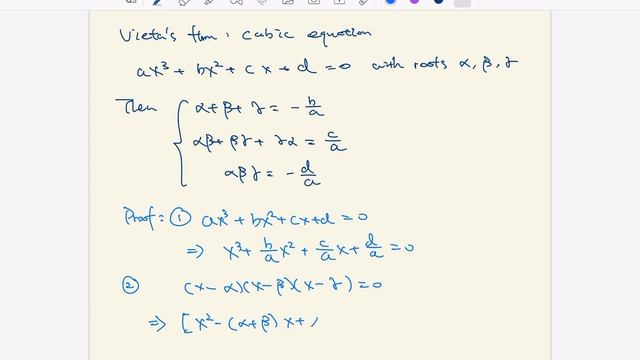 Vieta's thm: cubic equation
ax³ + bx² + cx + d = 0 with roots α, β, γ
Then { α + β + γ = - b/a
αβ + βγ + γα = c/a
αβγ = - d/a
Proof: ① ax³ + bx² + cx + d = 0
⇒ x³ + b/a x² + c/a x + d/a = 0
② (x - α)(x - β)(x - γ) = 0
⇒ [x² - (α + β) x +